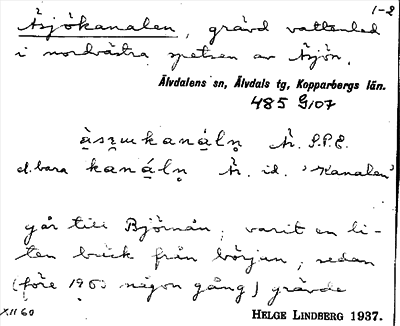 1-2
Åsjökanalen, grävd vattenled
i nordvästra spetsen av Åsjön.
Älvdalens sn, Älvdals tg, Kopparbergs län.
485 G107
kanáln Är. S.P.E.
el. bara kanáln Är. id. 'Kanalen'
går till Björnån; varit en li-
ten bäck från början, sedan
(före 1900 någon gång) grävde
XII 60
HELGE LINDBERG 1937.